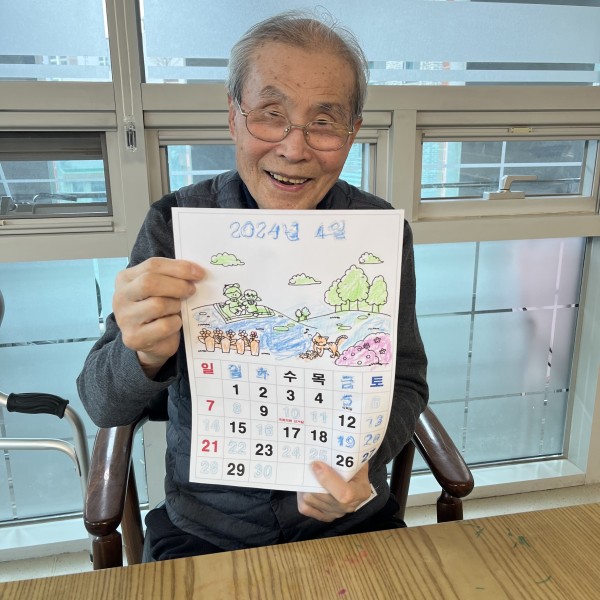 2024년 4월
일 월 화 수 목 금 토
1 2 3 4 5 6
7 8 9 10 11 12 13
14 15 16 17 18 19 20
21 22 23 24 25 26 27
28 29 30